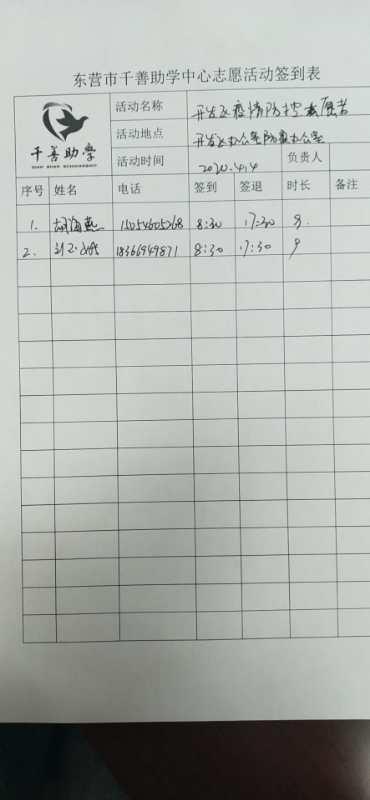 东营市千善助学中心志愿活动签到表
千善助学
活动名称 开发区疫情防控志愿者
活动地点 开发区办公室防疫办公室
活动时间 2020.4.4 负责人
序号 姓名 电话 签到 签退 时长 备注
1. 胡海燕 15054605268 8:30 17:30 9.
2. 18366949871 8:30 17:30 9